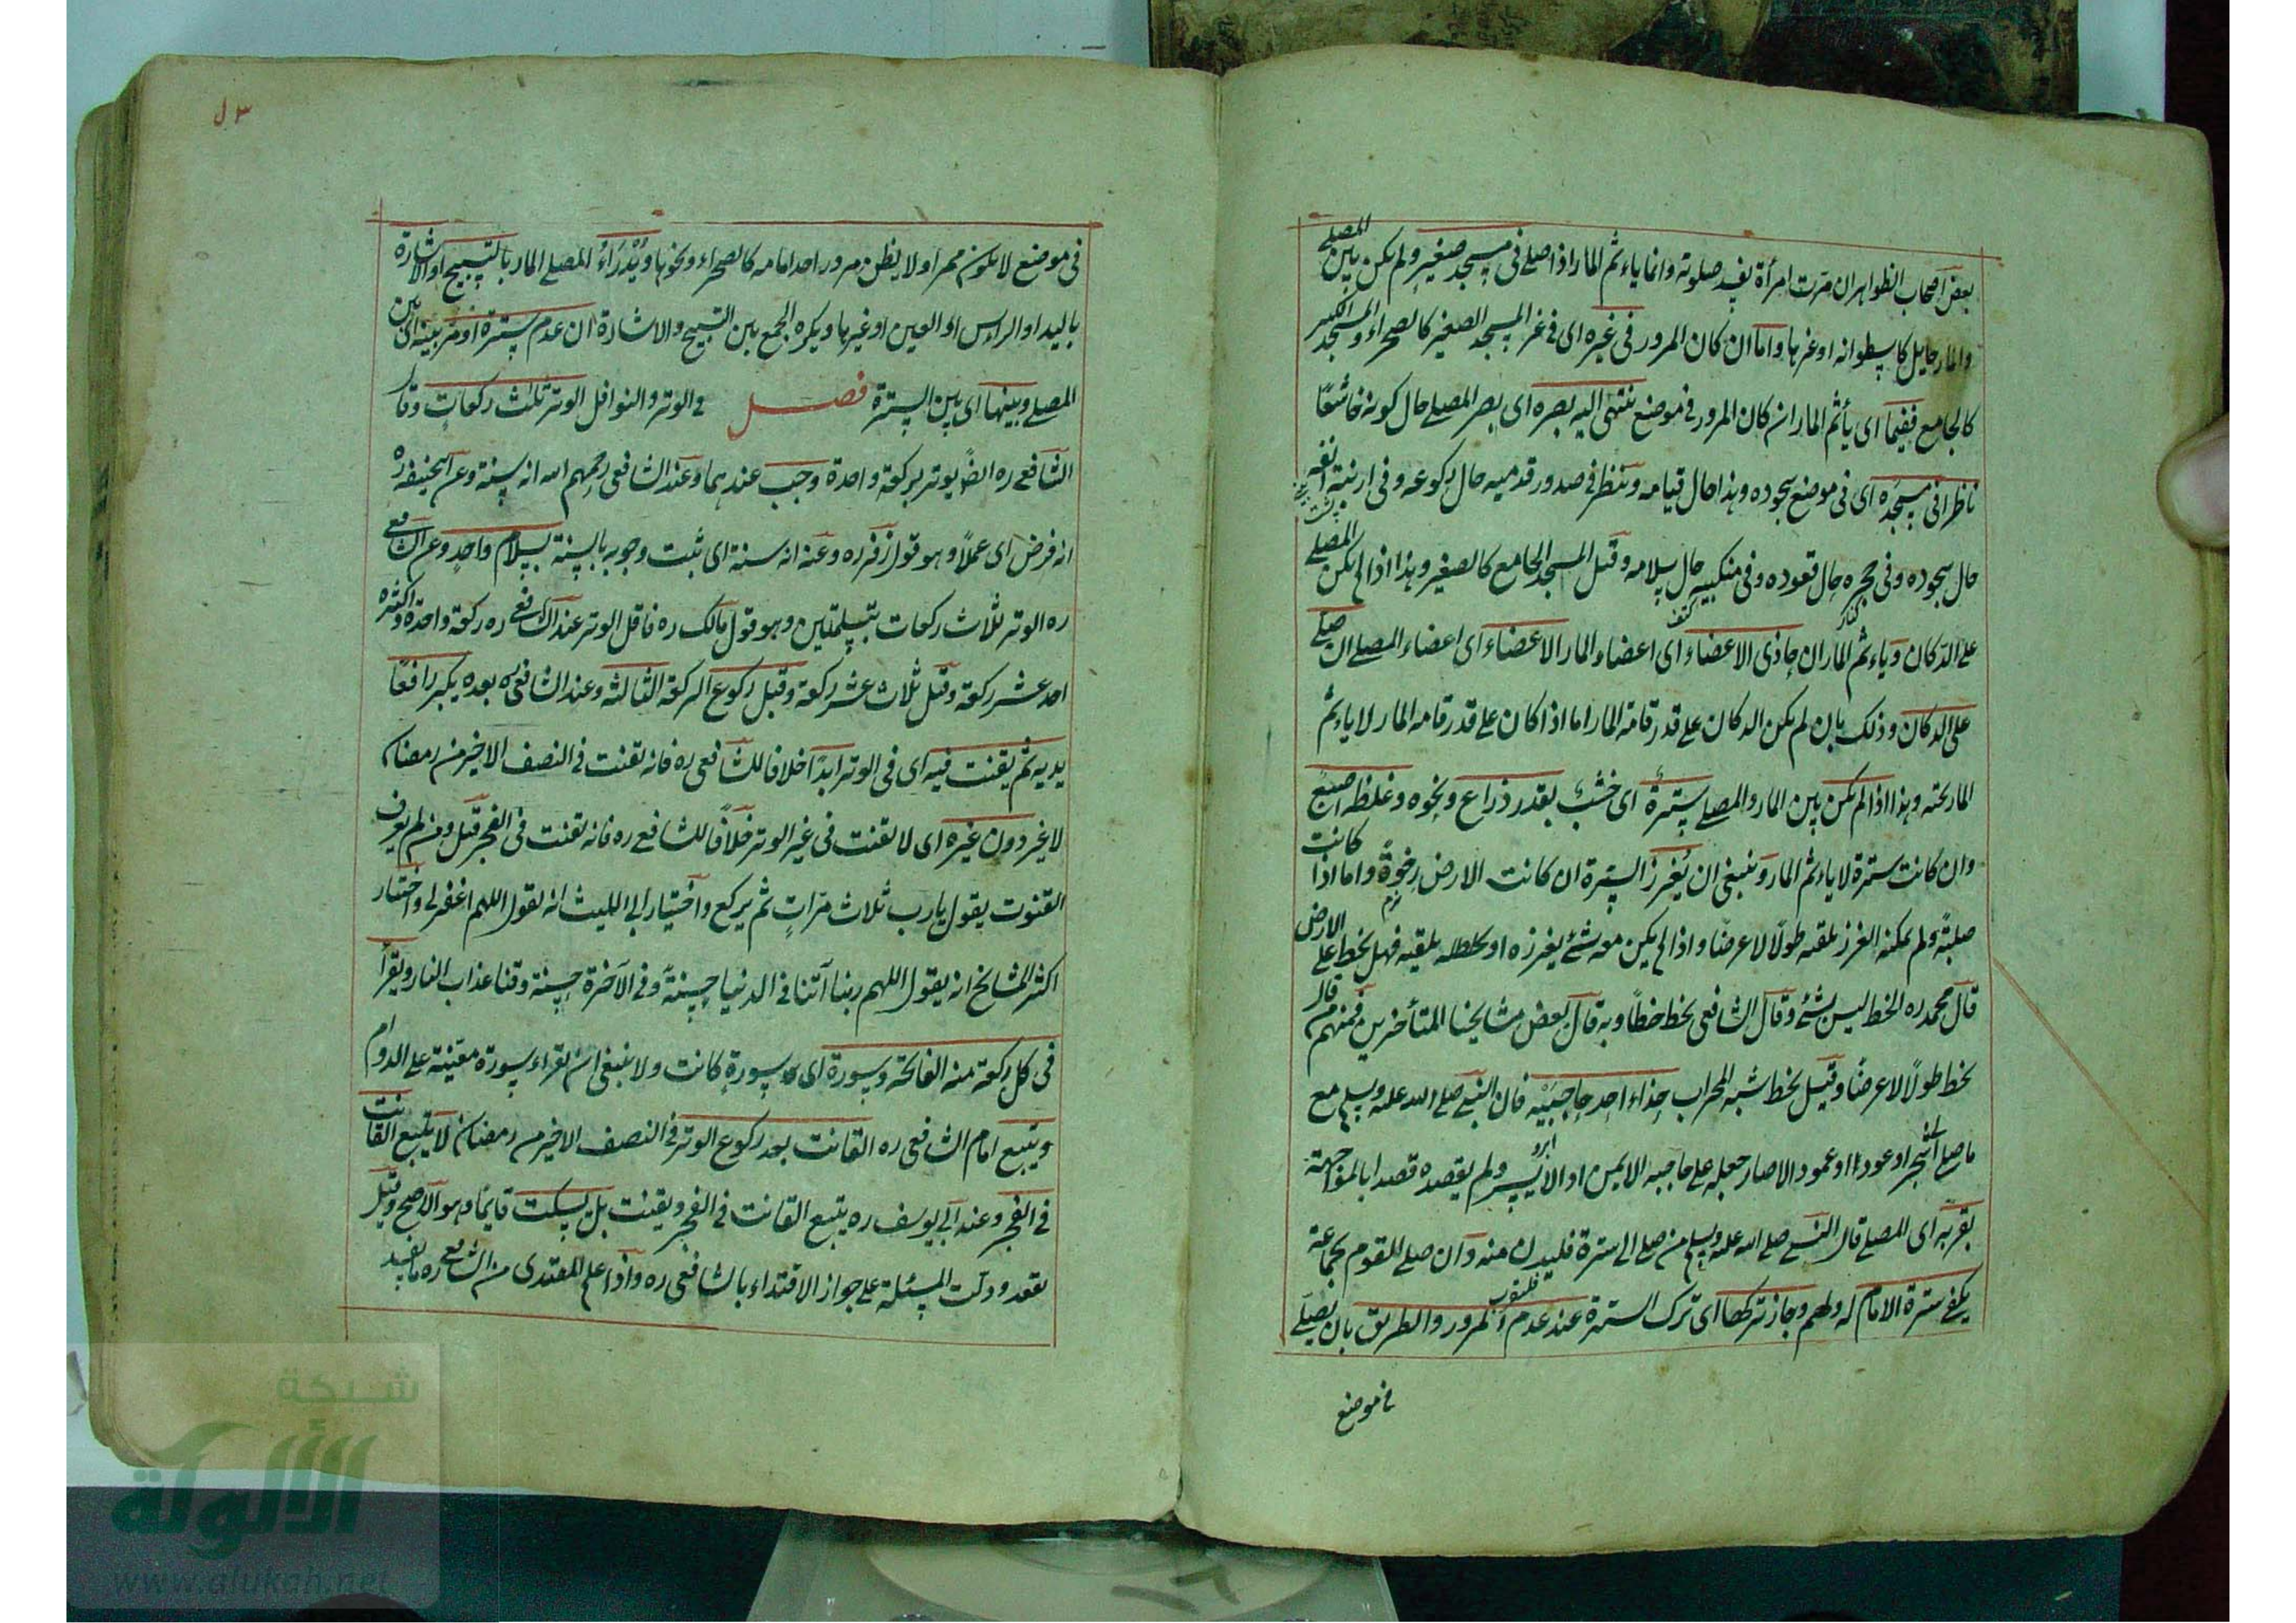 بعض اصحاب الظواهر ان مرت امرأة يفسد صلوته وانما ياءثم المار اذا صلى فى مسجد صغير ولم يكن بين المصلے
والمار حايل كاسطوانه او غيرها واما ان كان المرور فى غيره اى فى غير المسجد الصغير كالصحراء والمسجد الكبير
كالجامع ففيما اى يأثم المار ان كان المرور فى موضع ينتهى اليه بصره اى بصر المصلے حال كونه خاشعًا
ناظرا فى مسجده اى فى موضع سجوده وهذا حال قيامه وينظر فى صدور قدميه حال ركوعه وفى ارنبة انفه
حال سجوده وفى حجره حال قعوده وفى منكبيه حال سلامه وقيل المسجد الجامع كالصغير وهذا اذا لم يكن المصلے
كتف
على الدكان وياءثم المار ان حاذى الاعضاء اى اعضاء المار الاعضاء اى اعضاء المصلے ان صلے
على الدكان وذلك بان لم يكن الدكان على قدر قامة المار اما اذا كان على قدر قامه المار لا ياءثم
المار تحته وهذا اذا لم يكن بين المار والمصلے سترة اى خشب بقدر ذراع ونحوه وغلظه اصبع
وان كانت سترة لا ياءثم المار وينبغى ان يُغرز السترة ان كانت الارض رخوةً واما اذا كانت
نرم
صلبة ولم يمكنه الغرز يلقه طولًا لا عرضًا واذا لم يكن معه شئ يغرزه او يلقيه فهل يخط على الارض
قال محمد ره الخط ليس بشئ وقال الشافعى يخط خطاً وبه قال بعض مشايخنا المتأخرين فمنهم من قال
يخط طولًا لا عرضًا وقيل يخط شبه المحراب حذاء احد حاجبَيْه فان النبے صلے الله عليه وسلم مع
ابرو
ما صلے الى شجر او عود او عمود الا صار جعله على حاجبه الايمن او الايسر ولم يقصده قصدا بالمواجهة
بقربه اى المصلے قال النبے صلے الله عليه وسلم من صلے الى سترة فليدن منه وان صلے للقوم بجماعة
يكفے سترة الامام له ولهم وجاز تركها اى ترك السترة عند عدم المرور والطريق بان يصلے
فى موضع
فى موضع لا يكون ممر او لا يظن مرور احد امامه كالصحراء ونحوها ويُدْرَاءُ المصلے المار بالتسبيح او الاشارة
باليد او الراءس او العين او غيرها ويكره الجمع بين التسبيح والاشارة ان عدم سترة او مر بينه اى بين
المصلے وبينها اى بين السترة فصل فى الوتر والنوافل الوتر ثلث ركعات وقال
الشافعے ره ايضًا يوتر بركعة واحدة وجب عندهما وعند الشافعى رحمهم الله انه سنة وعن ابيحنيفه ره
انه فرض اى عملًا وهو قول زفر ره وعنه انه سنة اى ثبت وجوبه بالسنة بسلام واحد وعن الشافعے
ره الوتر ثلاث ركعات بتسلمتين وهو قول مالك ره فاقل الوتر عند الشافعے ره ركعة واحدة واكثره
احد عشر ركعة وقيل ثلاث عشر ركعة وقبل ركوع الركعة الثالثه وعند الشافعى ره بعده يكبر رافعًا
يديه ثم يقنت فيه اى فى الوتر ابدًا خلافا للشافعى ره فانه يقنت فى النصف الاخير من رمضان
لا غير دون غيره اى لا يقنت فى غير الوتر خلافًا للشافعے ره فانه يقنت فى الفجر قيل ومن لم يعرف
القنوت يقول يا رب ثلاث مرات ثم يركع واختيار ابى الليث انه يقول اللهم اغفر لى واختيار
اكثر المشايخ انه يقول اللهم ربنا آتنا فى الدنيا حسنةً وفى الآخرة حسنة وقنا عذاب النار ويقرأ
فى كل ركعة منه الفاتحة وسورة اى سورة كانت ولا ينبغى ان يقراء سورة معينة على الدوام
ويتبع امام الشافعى ره القانت بعد ركوع الوتر فى النصف الاخير من رمضان لا يتبع القانت
فى الفجر وعند ابى يوسف ره يتبع القانت فى الفجر ويقنت بل يسكت قايما وهو الاصح وقيل
يقعد ودلت المسئلة على جواز الاقتداء بالشافعى ره واذا علم المقتدى من الشافعے ره ما يفسد
شبكة
الألوكة
www.alukah.net